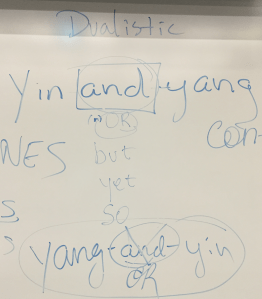 Dualistic
Yin and-yang
OR
con-
NES but
yet
S, so
yang-and-yin
OR